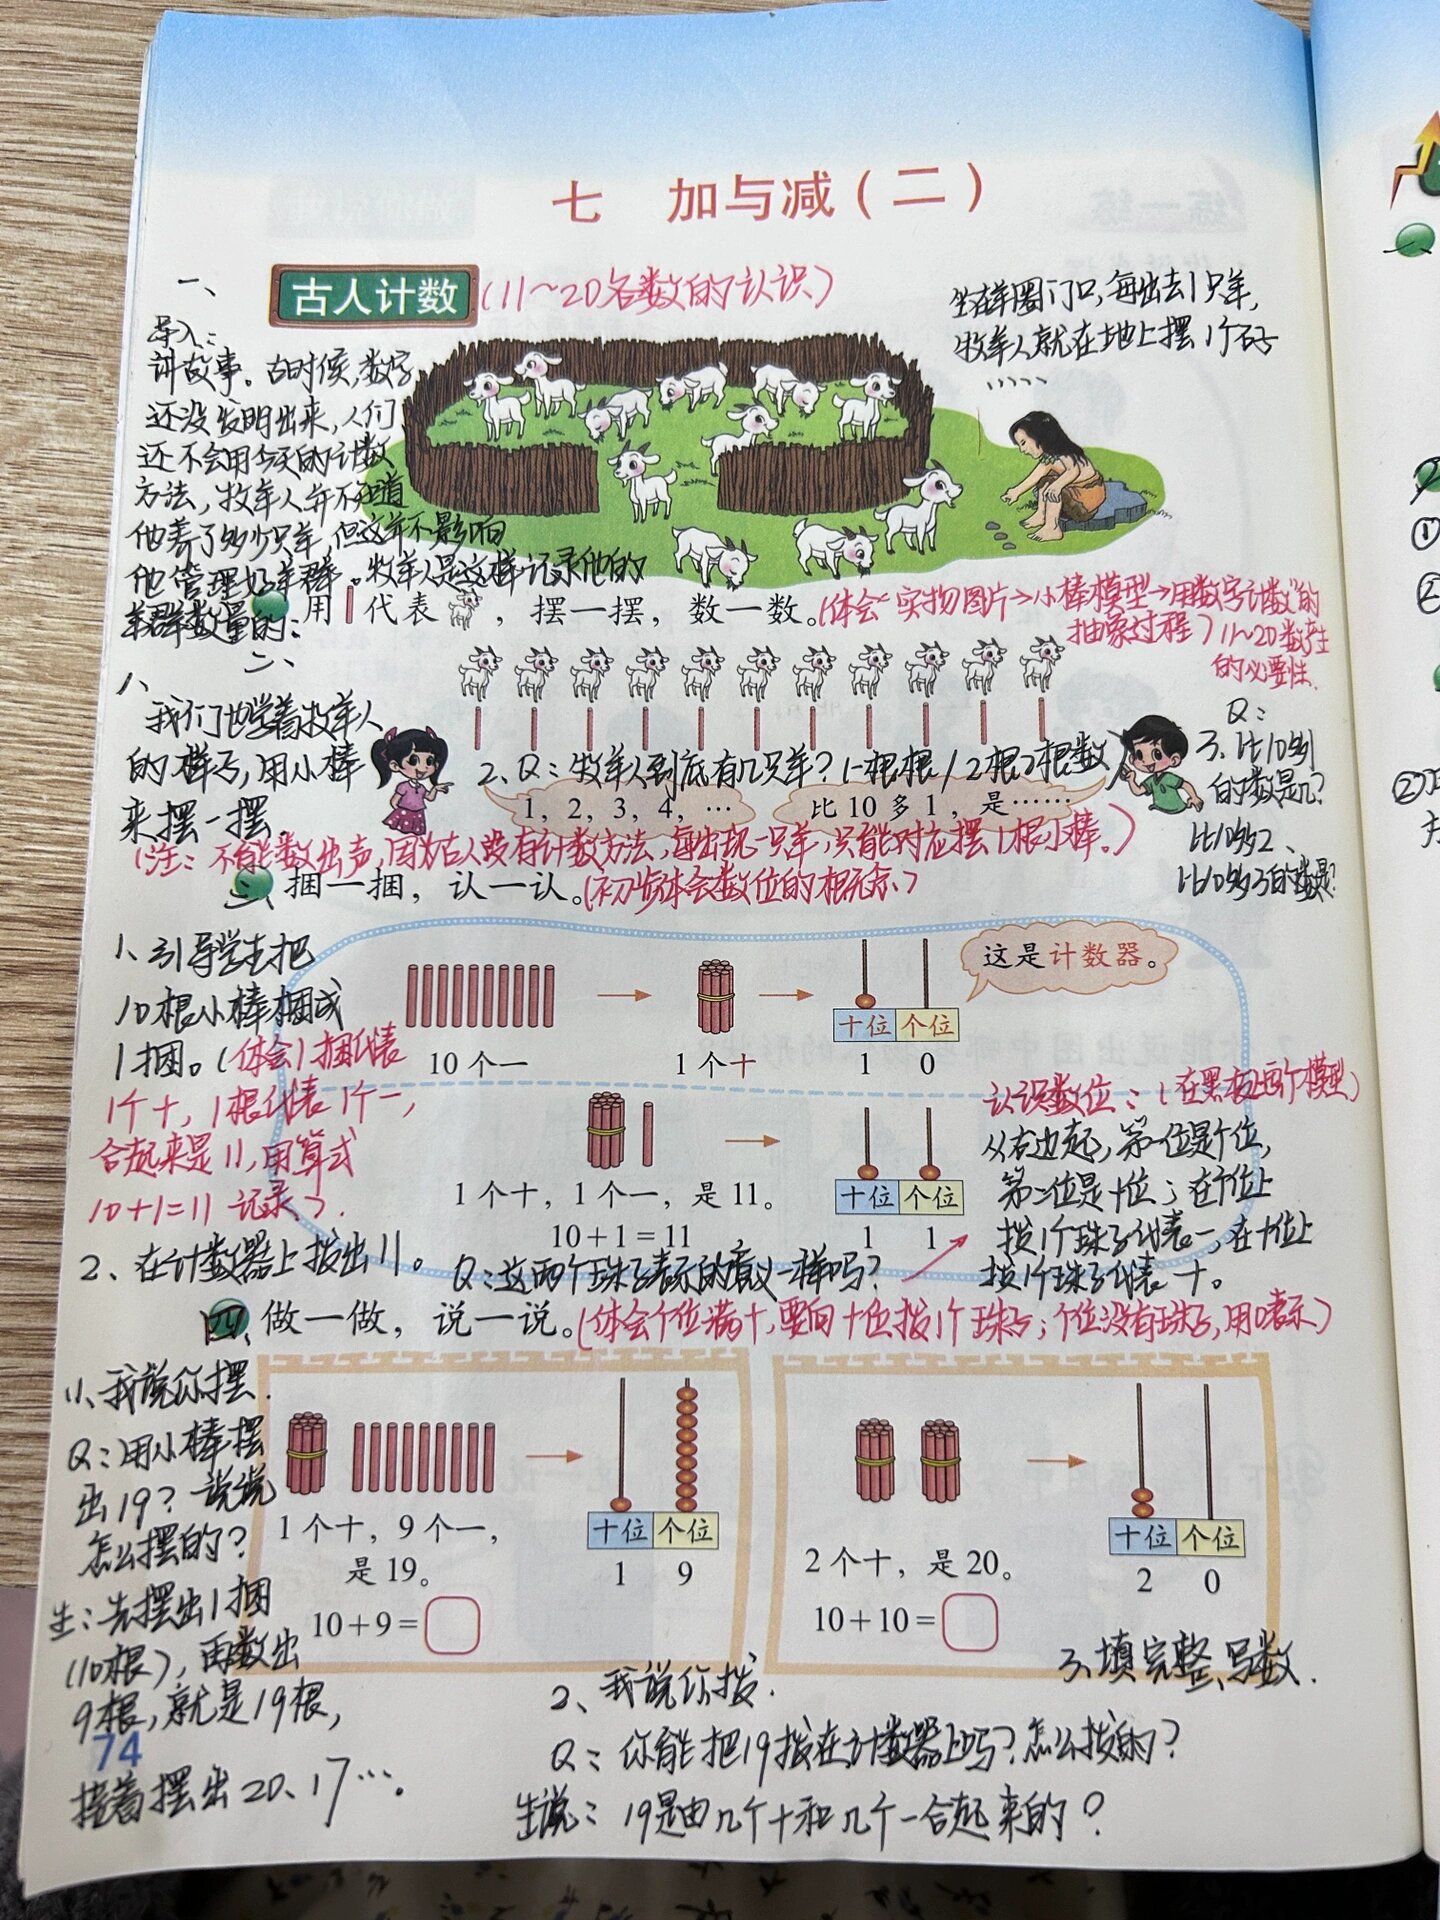 七 加与减（二）
一、
古人计数
（11～20各数的认识）
导入：
讲故事。古时候，数字
还没发明出来，人们
还不会用今天的计数
方法，牧羊人并不知道
他养了多少只羊，但这并不影响
他管理好羊群。牧羊人是这样记录他的
羊群数量的：
坐在羊圈门口，每出去1只羊，
牧羊人就在地上摆1个石子
……
二、
用 代表 ，摆一摆，数一数。
（体会“实物图片→小棒模型→用数字计数”的
抽象过程）11～20数产生
的必要性.
1、
我们也学着牧羊人
的样子，用小棒
来摆一摆
2、Q：牧羊人到底有几只羊？1根1根/2根2根数
1，2，3，4，…
比10多1，是……
Q：
3、比10多1
的数是几？
比10多2、
比10多3的数是？
（注：不能数出声，因为古人没有计数方法，每出现一只羊，只能对应摆1根小棒。）
三、
捆一捆，认一认。
（初步体会数位的相关示、）
1、引导学生把
10根小棒捆成
1捆。（体会1捆代表
1个十，1根代表1个一，
合起来是11，用算式
10+1=11 记录、）.
10个一
1个十
十位 个位
1 0
这是计数器。
1个十，1个一，是11。
10+1=11
十位 个位
1 1
认识数位：（在黑板上画个模型）
从右边起，第一位是个位，
第二位是十位；在个位上
拨1个珠子代表一，在十位上
拨1个珠子代表十。
2、在计数器上拨出11。
Q：这两个珠子表示的意义一样吗？
四、
做一做，说一说。
（体会个位满十，要向十位拨1个珠子；个位没有珠子，用0表示）
1、我说你摆.
Q：用小棒摆
出19？说说
怎么摆的？
生：先摆出1捆
（10根），再数出
9根，就是19根，
接着摆出20、17….
1个十，9个一，
是19。
10+9=
十位 个位
1 9
2个十，是20。
10+10=
十位 个位
2 0
3、填完整、写数.
2、我说你拨.
Q：你能把19拨在计数器上吗？怎么拨的？
生说：19是由几个十和几个一合起来的？
74